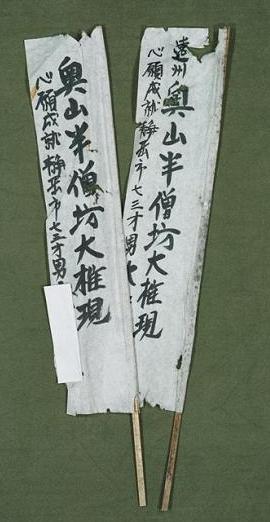 遠州
奥山半僧坊大権現
心願成就 静岡市 七三才男
奥山半僧坊大権現
心願成就 静岡市 七三才男